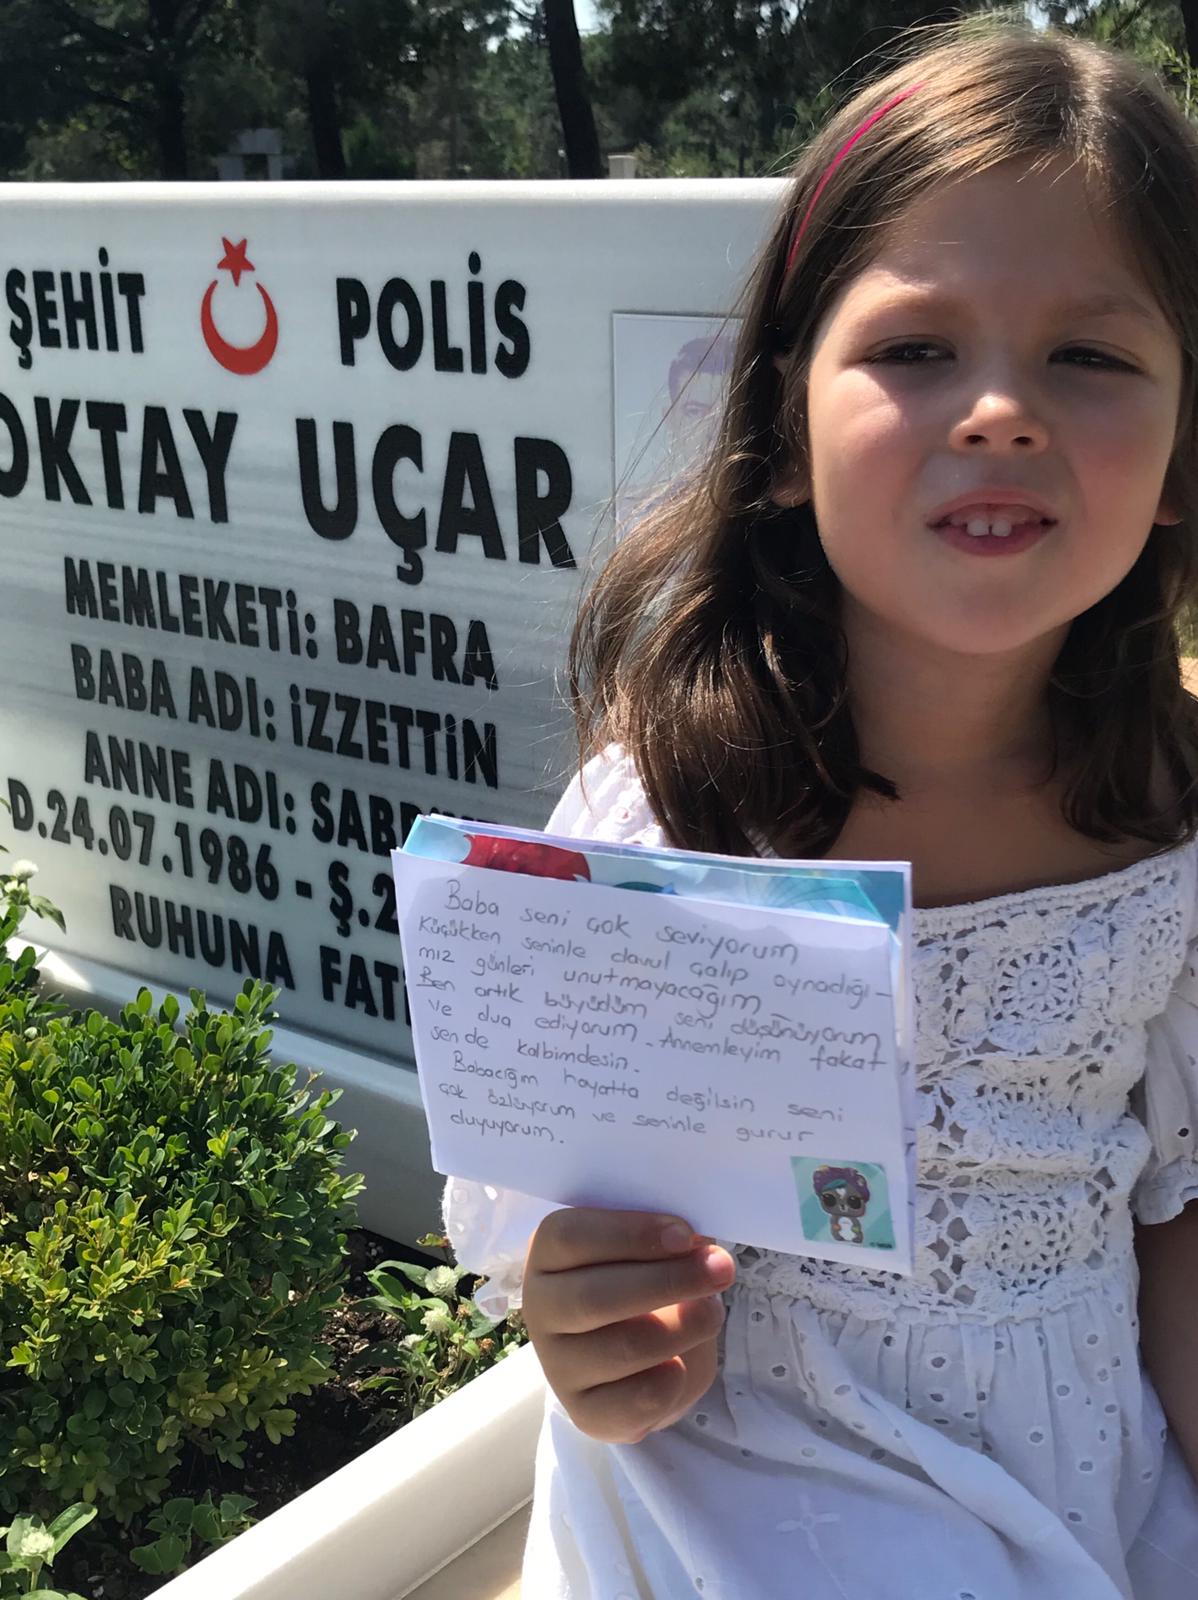 ŞEHİT POLİS
OKTAY UÇAR
MEMLEKETİ: BAFRA
BABA ADI: İZZETTİN
ANNE ADI:
D.24.07.1986 - Ş.2
RUHUNA
Baba seni çok seviyorum
Küçükken seninle davul çalıp oynadığı-
mız günleri unutmayacağım
Ben artık büyüdüm seni düşünüyorum
ve dua ediyorum. Annemleyim fakat
sen de kalbimdesin.
Babacığım hayatta değilsin seni
çok özlüyorum ve seninle gurur
duyuyorum.